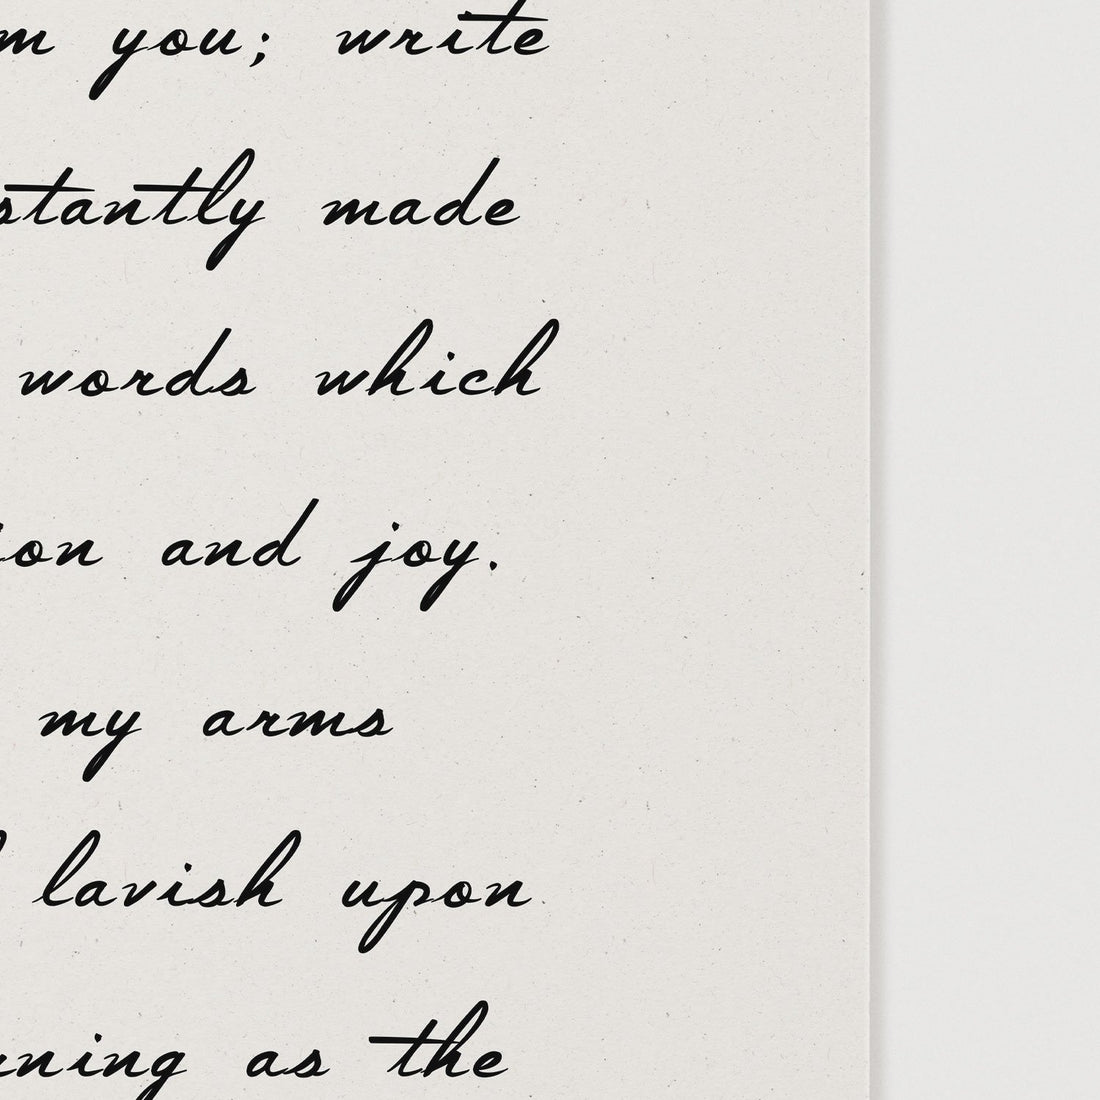 m you; write
stantly made
words which
ion and joy.
my arms
lavish upon
rning as the